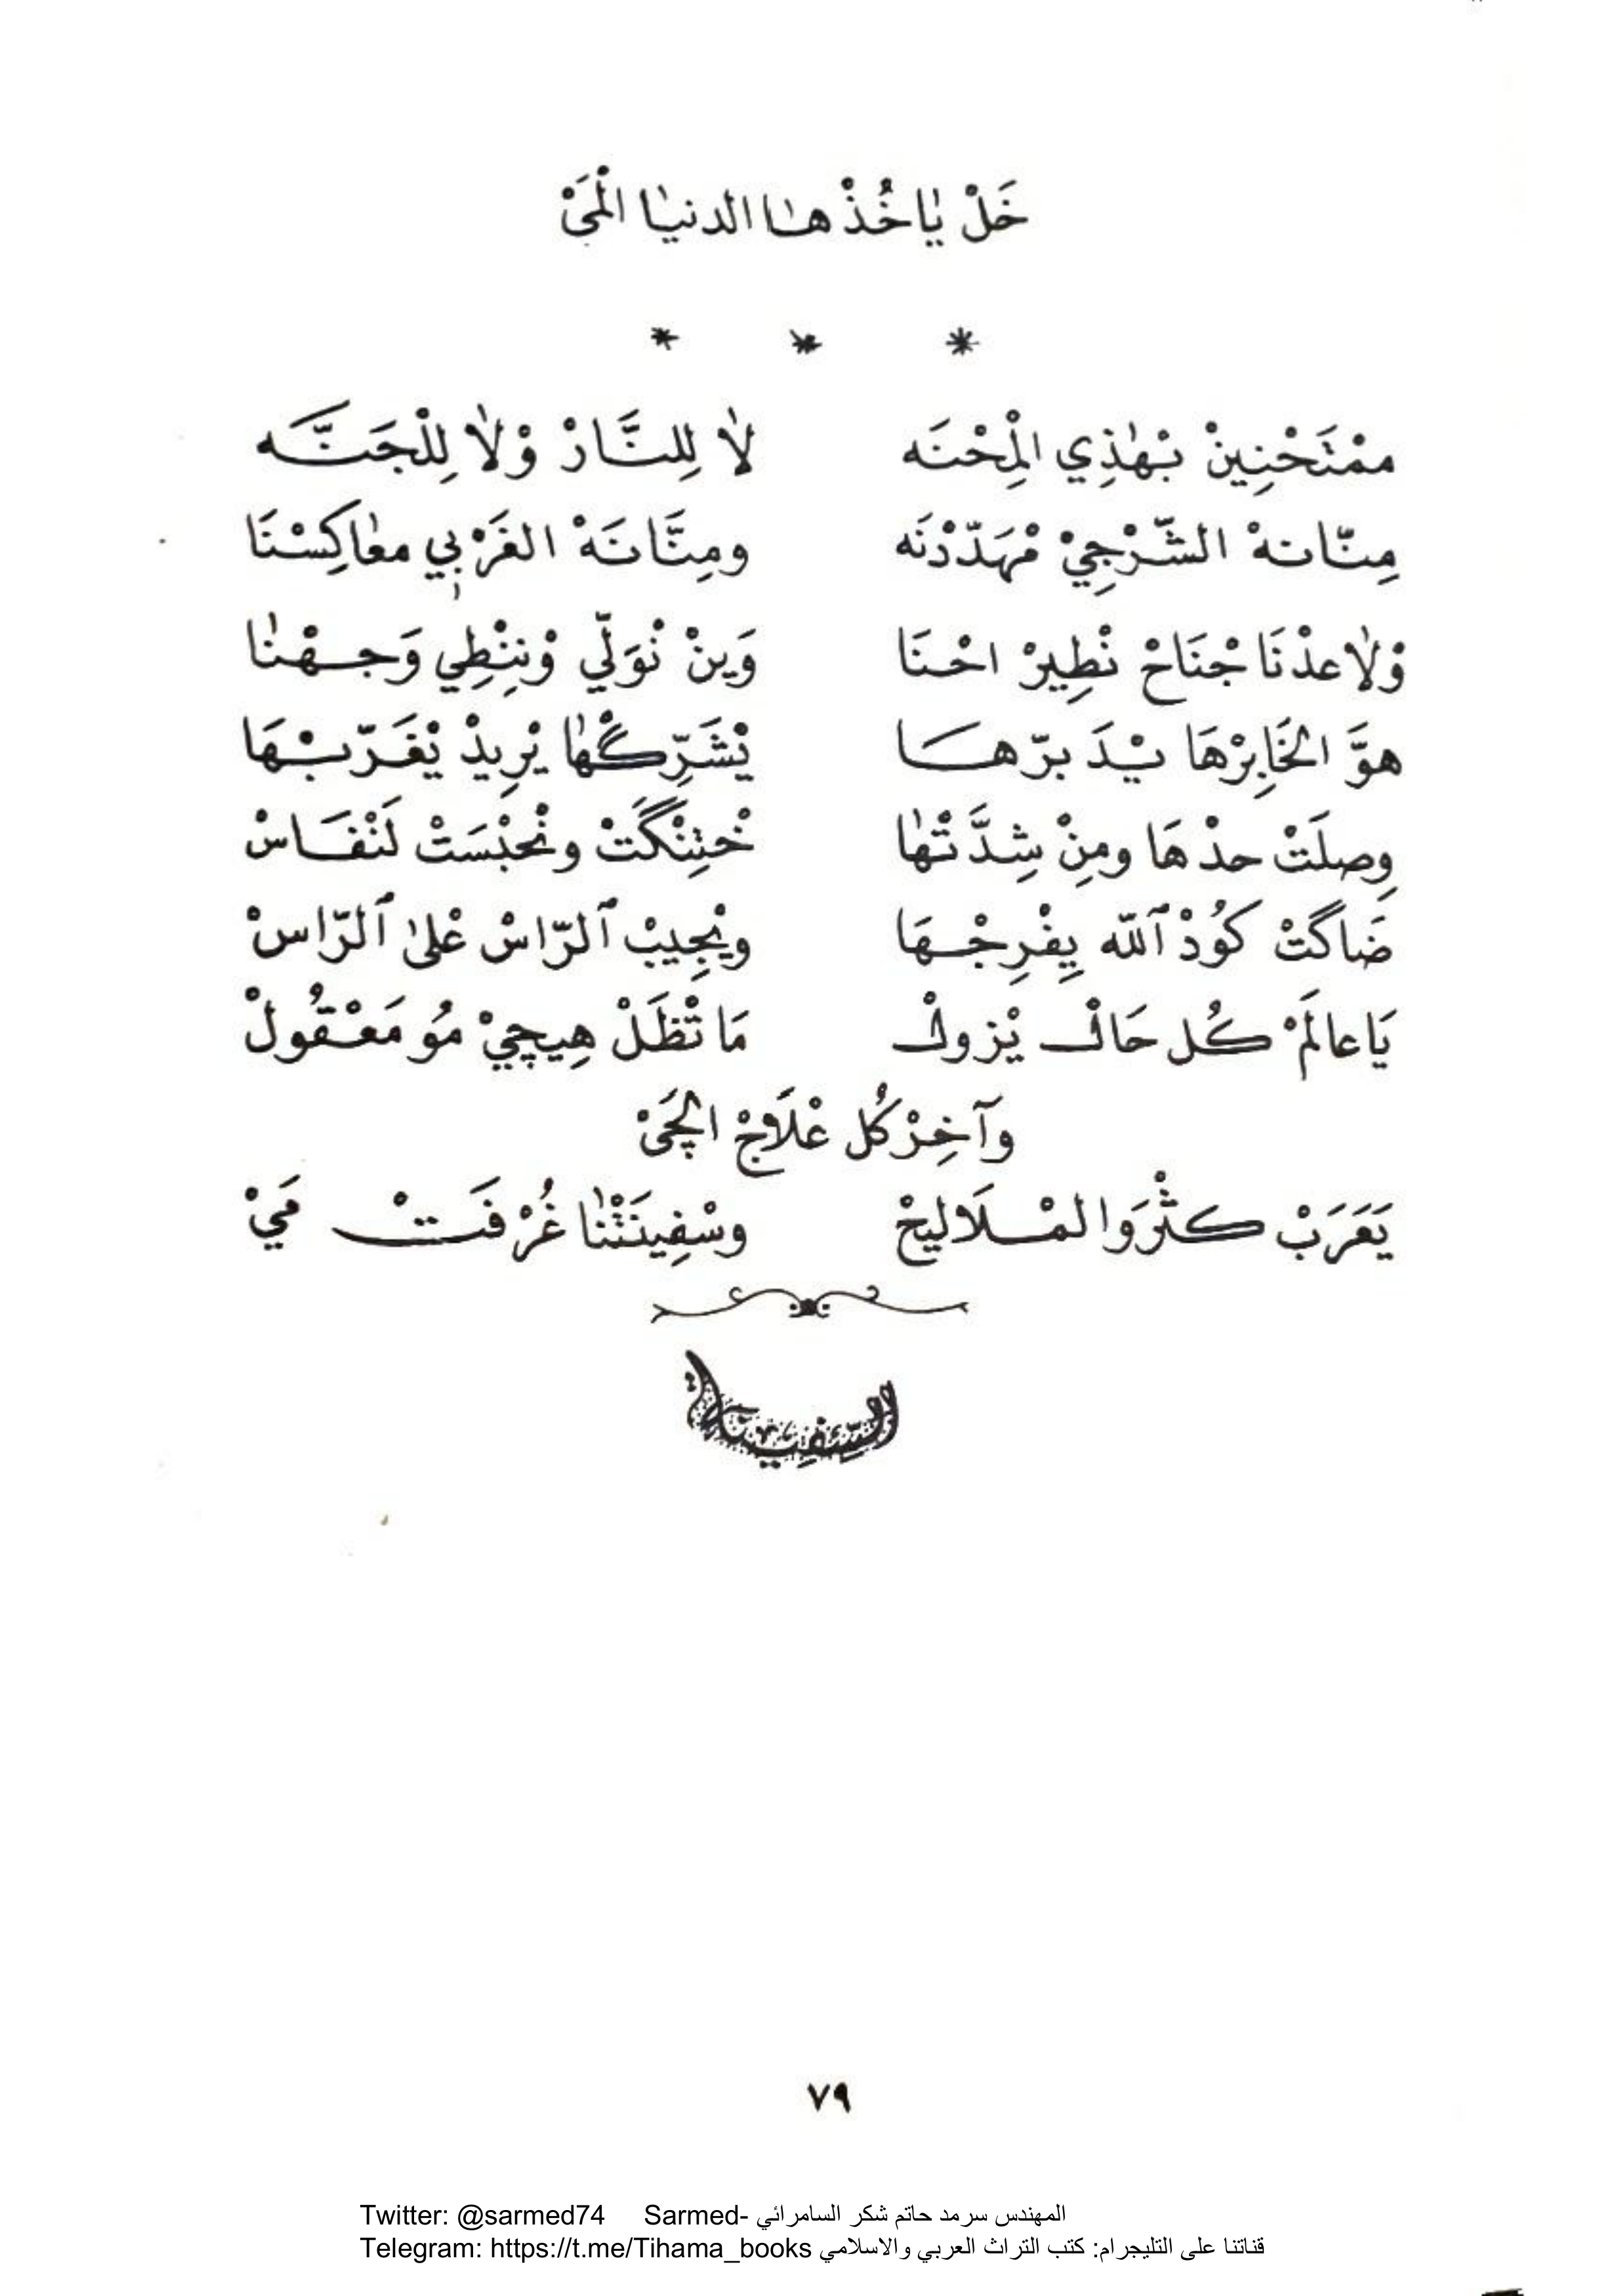 خَلْ يَاخُذْ هَا الدنيَا الْمَيْ
* * *
ممْتَحْنِينْ بْهٰذِي الْمِحْنَه لَا لِلنَّارْ وْلَا لِلْجَنَّه
مِنّانهْ الشّرْجِيْ مْهَدّدْنَه ومِنَّانَهْ الغَرْبِي معٰاكِسْنَا
وْلَا عدْنَا جْنَاحْ نْطِيرْ احْنَا وَينْ نْوَلّي وْنِنْطِي وَجهْنٰا
هوَّ الخَابِرْهَا يْدَبرّهَا يْشَرِّگْهٰا يْرِيدْ يْغَرّبْهَا
وِصلَتْ حدْهَا ومِنْ شِدَّتْهٰا خْتِنْگَتْ ونْحبْسَتْ لَنْفَاسْ
ضَاگَتْ كَوُدْ ٱللّه يِفْرِجْهَا ويْجِيبْ ٱلرّاسْ عْلىٰ ٱلرّاسْ
يَا عالَمْ كُل حَالْ يْزولْ مَا تْظَلْ هِيچِيْ مُو مَعْقُولْ
وآخِرْ كُل عْلَاجْ الچَيْ
يَعَرَبْ كثْرَوا المْلَالِيحْ وسْفِينَتْنٰا غُرْفَتْ مَيْ
السفينة
٧٩
Twitter: @sarmed74 Sarmed- المهندس سرمد حاتم شكر السامرائي
Telegram: https://t.me/Tihama_books قناتنا على التليجرام: كتب التراث العربي والاسلامي